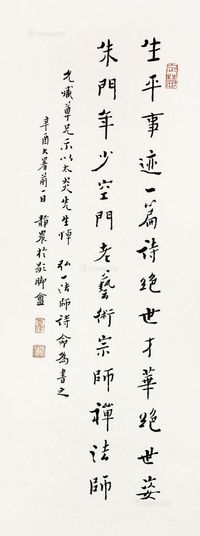 生平事迹一篇詩絕世才華絕世姿
朱門年少空門老藝術宗師禪法師
允臧尊兄示以太炎先生悼弘一法師詩命為書之
辛酉大暑前一日靜農於龍坡